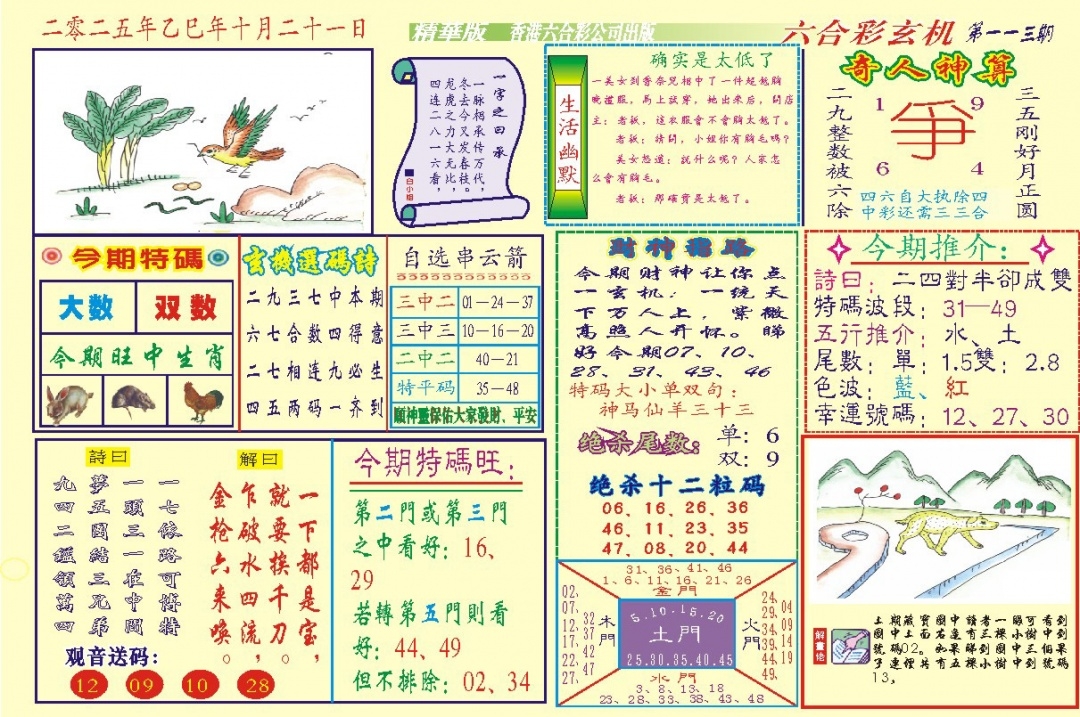 二零二五年乙巳年十月二十一日
精華版 香港六合彩公司出版
六合彩玄机 第一一三期
一字之曰:承
一脉相承传万代,
冬去今又发春枝。
龙虎之力大无比,
四连二八一六看。
白小姐
生活幽默
确实是太低了
一美女到香奈儿相中了一件超低胸
晚禮服,馬上試穿,她出來后,問店
主:老板,這衣服會不會胸太低了。
老板:請問,小姐你有胸毛嗎?
美女怒道:説什么呢?人家怎
么會有胸毛。
老板:那確實是太低了。
奇人神算
三五刚好月正圆
二九整数被六除
1 9
爭
6 4
四六自大执除四
中彩还需三三合
今期特碼
大数 双数
今期旺中生肖
玄機選碼詩
二九三七中本期
六七合数四得意
二七相连九必生
四五两码一齐到
自选串云箭
三中二 01－24－37
三中三 10－16－20
二中二 40－21
特平码 35－48
願神靈保佑大家發財、平安
財神指路
今期财神让你点
一玄机:一统天
下万人上,紫微
高照人开怀。睇
好今期07、10、
28、31、43、46
特码大小单双句:
神马仙羊三十三
绝杀尾数:
单:6
双:9
绝杀十二粒码
06、16、26、36
46、11、23、35
47、08、20、44
今期推介:
詩曰:二四對半卻成雙
特碼波段:31—49
五行推介:水、土
尾數:單:1.5雙:2.8
色波:藍、紅
幸運號碼:12、27、30
詩曰
一七依路可博特
一頭三一在中間
夢五圆結三兄弟
九四二鑑領萬四
解曰
一下都是宝,
就要挨千刀。
乍破水四流,
金枪六来唤。
观音送码:
12 09 10 28
今期特碼旺:
第二門或第三門
之中看好:16、
29
若轉第五門則看
好:44、49
但不排除:02、34
31、36、41、46
1、6、11、16、21、26
金門
02、07、12、17、22、27、
32、37、42、47
木門
5.10.15.20
土門
25.30.35.40.45
火門
24、29、34、39、44、49
04、09、14、19
水門
3、8、13、18
23、28、33、38、43、48
解畫佬
上期藏寶圖中讀者一睇可看到
圖中上面右邊有三棵小樹中到
號碼02。如果睇到圖中三個果
子連裡共有五棵小樹中到號碼
13,